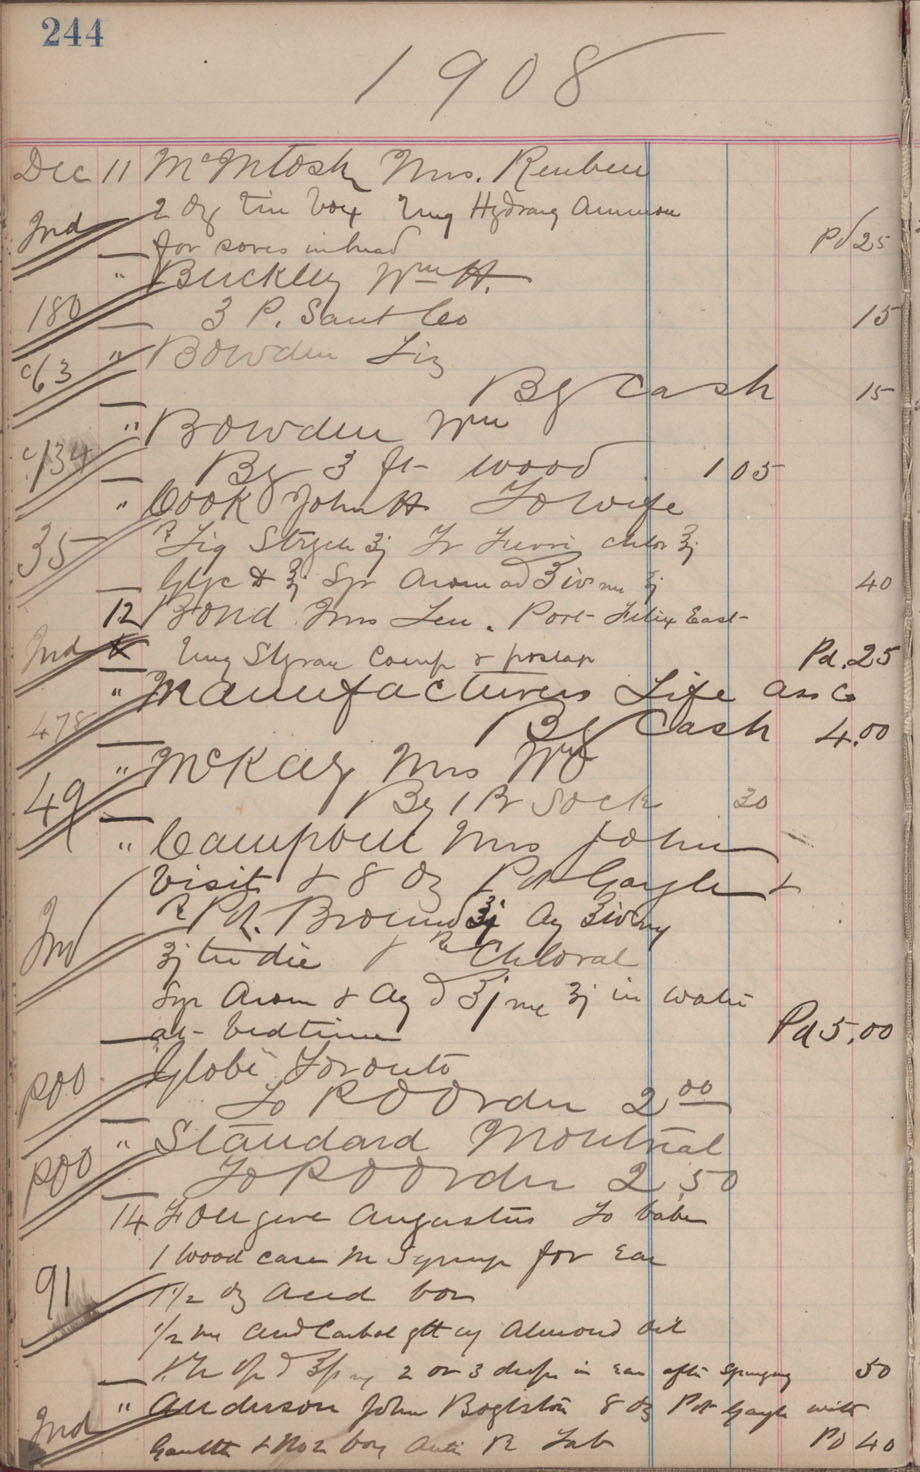 244
1908
Dec 11 McIntosh Mrs. Reuben
2 oz tin box Ung Hydrarg Ammon
Ind for sores in head Pd 25
" Buckley Wm H.
180 3 P. Sant Co 15
c/63 " Bowden Liz
By Cash 15
" Bowden Wm
c/134 By 3 ft wood 1 05
" Cook John H To wife
35 Liq Strych ʒj Tr Ferri chlor ʒj
Glyc Spr Arom ad 40
12 Bond Mrs Len. Port Felix East
Ind Ung Styrax Comp & Pd. 25
" Manufacturers Life ass Co
478 By Cash 4.00
" McKay Mrs Wm
49 By 1 Pr Sock 30
" Campbell Mrs John
Visit & 8 oz Pot &
Ind Pot. Brom ʒj Aq
ʒj ter die & Chloral
Syr Arom & Aq ʒj in water
at bedtime Pd 5.00
Globe Toronto
POO To P O Order 2 00
" Standard Montreal
POO To P O Order 2 50
14 Fougere Augustus To babe
1 wood case M Syringe for Ear
91 1 1/2 oz Acid bor
1/2 Acid Carbol gtt Almond Oil
2 or 3 drops in Ear after Syringing 50
" Anderson John Boylston 8 oz Pot with
Ind Gaulth & No 2 box Anti Tab Pd 40